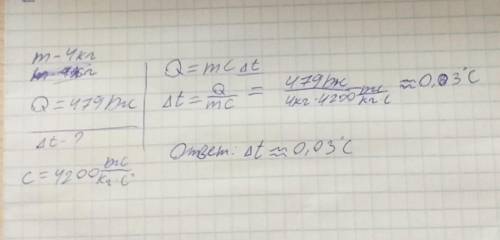 m - 4кг
Q = 479 Дж
Δt - ?
c = 4200 Дж/кг·C°
Q = mc Δt
Δt = Q/mc = 479 Дж/4кг·4200 Дж/кг·C ≈ 0,03°C
Ответ: Δt ≈ 0,03°C